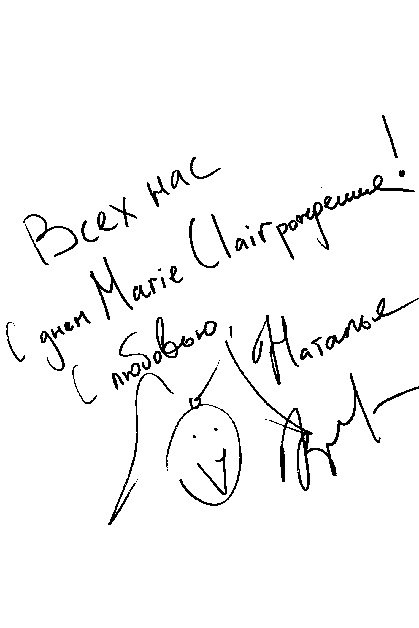 Всех нас
С днем Marie Clairрождения!
С любовью,
Наталья